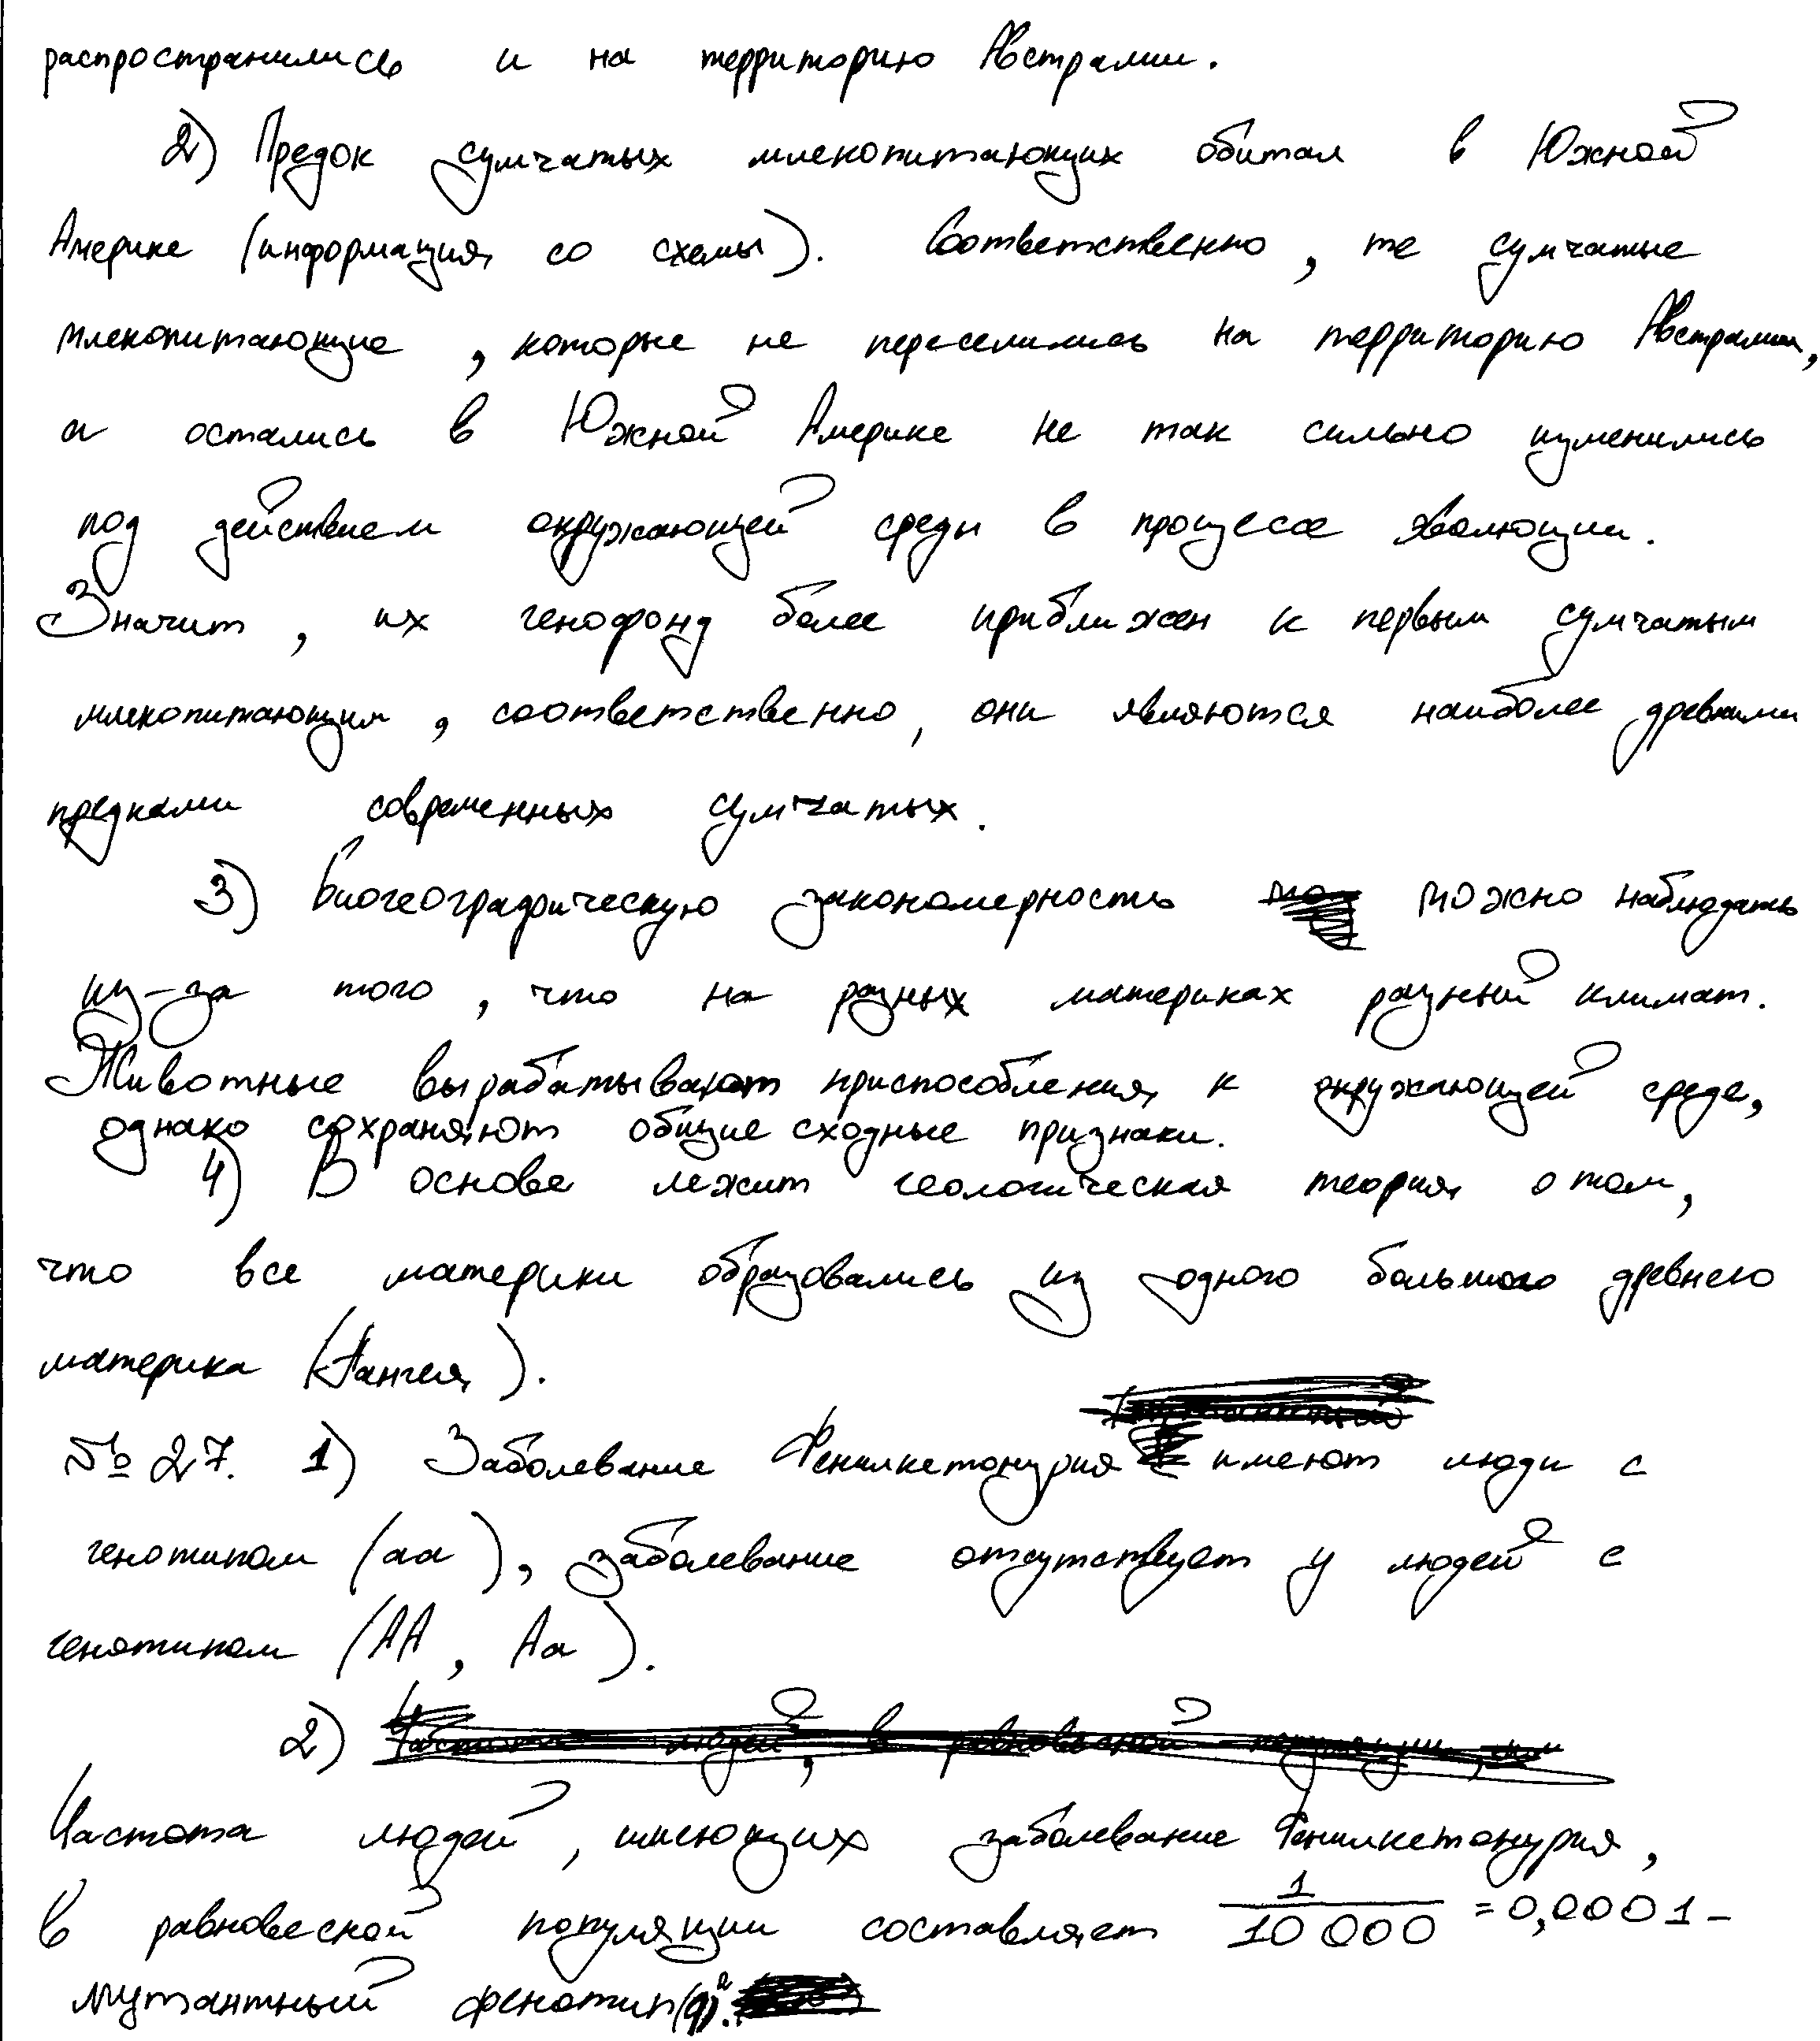 распространились и на территорию Австралии.
2) Предок сумчатых млекопитающих обитал в Южной
Америке (информация со схемы). Соответственно, те сумчатые
млекопитающие, которые не переселились на территорию Австралии,
а остались в Южной Америке не так сильно изменились
под действием окружающей среды в процессе эволюции.
Значит, их генофонд более приближен к первым сумчатым
млекопитающим, соответственно, они являются наиболее древними
предками современных сумчатых.
3) Биогеографическую закономерность можно наблюдать
из-за того, что на разных материках разный климат.
Животные вырабатывают приспособления к окружающей среде,
однако сохраняют общие сходные признаки.
4) В основе лежит геологическая теория о том,
что все материки образовались из одного большого древнего
материка (Пангея).
№ 27. 1) Заболевание Фенилкетонурия имеют люди с
генотипом (аа), заболевание отсутствует у людей с
генотипом (АА, Аа).
2)
Частота людей, имеющих заболевание Фенилкетонурия,
в равновесной популяции составляет 1/10 000 = 0,0001 –
мутантный фенотип (q)².